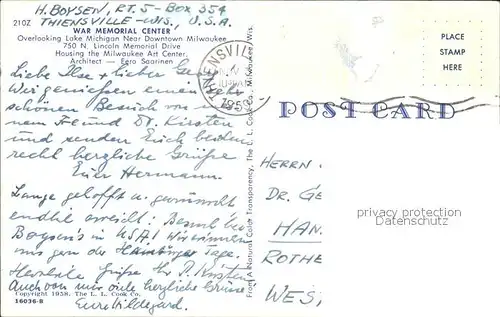 H. BOYSEN, RT. 5 - BOX 354
210Z THIENSVILLE - WIS., U.S.A.
WAR MEMORIAL CENTER
Overlooking Lake Michigan Near Downtown Milwaukee
750 N. Lincoln Memorial Drive
Housing the Milwaukee Art Center
Architect — Eero Saarinen
Liebe Ilse + lieber
Wir geniessen einen sehr
schönen Besuch von
nem Freund Dr. Kirsten
und senden Euch beiden
recht herzliche Grüße
Euer Hermann.
Lange gehofft u. gewünscht
endlich erreicht! Besuch bei
Boysen's in USA! Wir erinnern
uns gern der Hamburger Tage.
Herzliche Grüße Ihr P. Kirsten
Auch von mir viele herzliche Grüße
Eure Hildegard.
Copyright 1958. The L. L. Cook Co.
16036-B
THIENSVILLE
1959
From A Natural Color Transparency, The L. L. Cook Co., Milwaukee, Wis.
PLACE
STAMP
HERE
POST CARD
HERRN
DR. GE
HAN
ROTHE
WES
privacy protection
Datenschutz